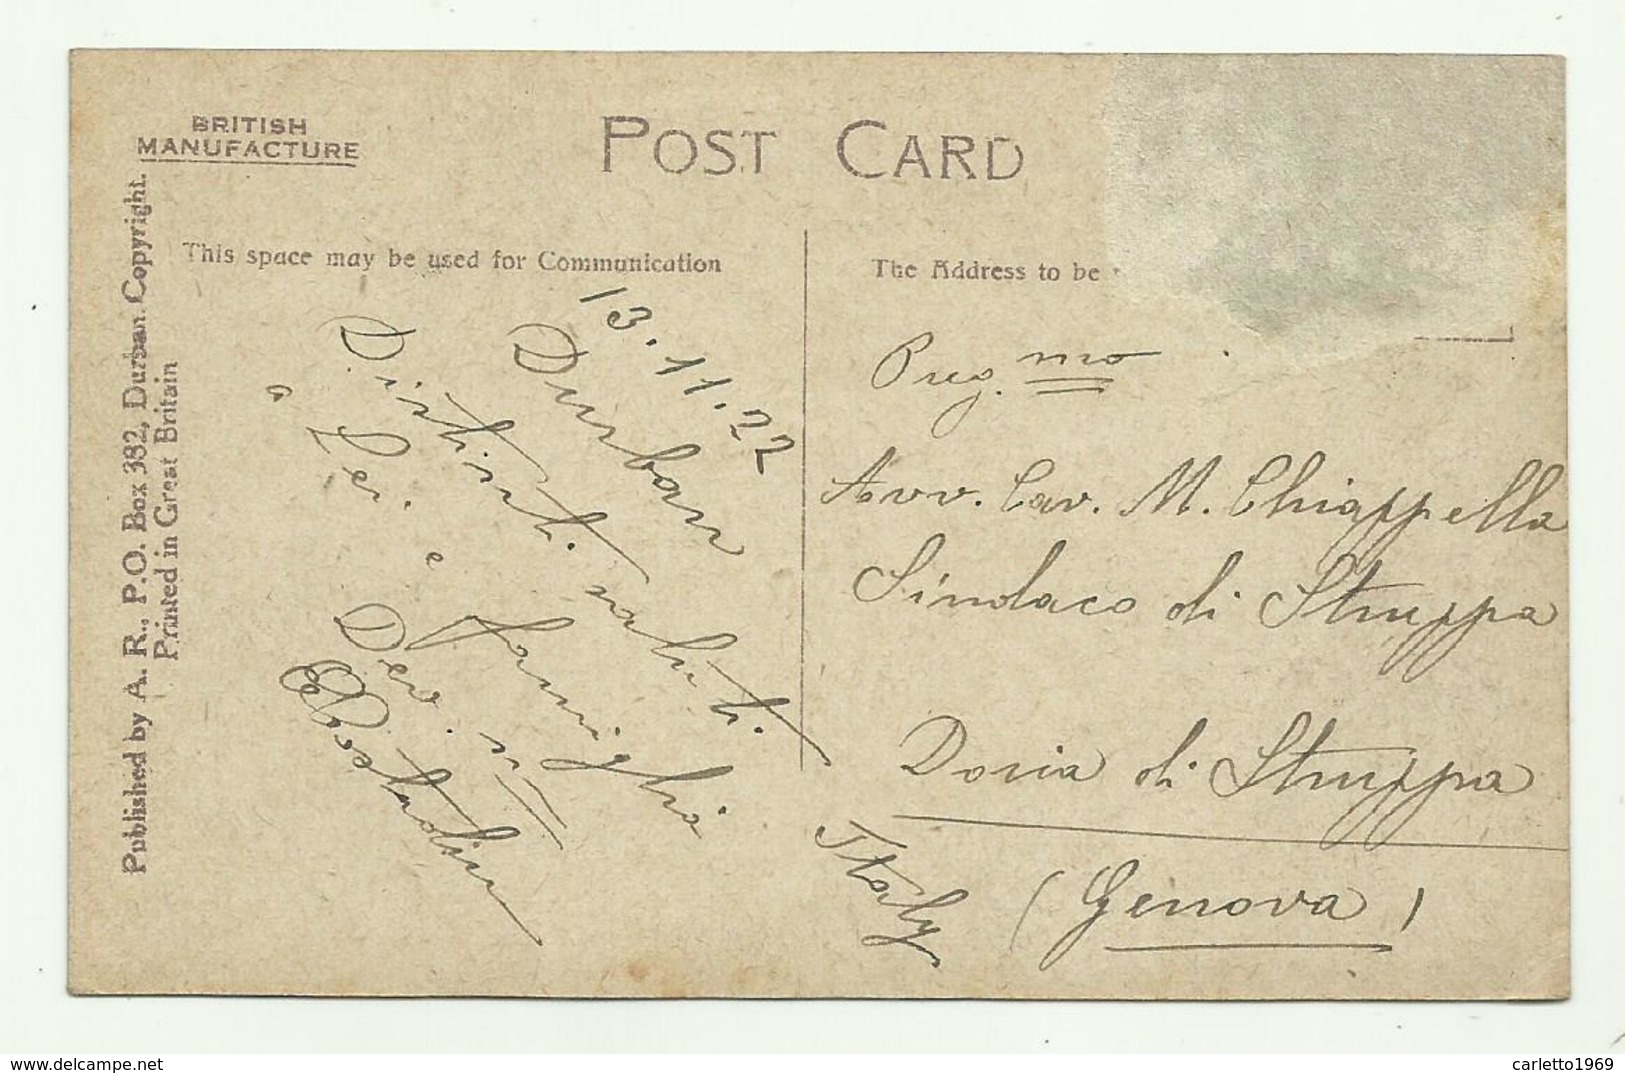 BRITISH
MANUFACTURE
POST CARD
Published by A. R., P.O. Box 382, Durban. Copyright.
Printed in Great Britain
This space may be used for Communication
The Address to be
13.11.22
Durban
Distinti saluti
a Lei e famiglia
Dev.
Preg.mo
Avv. Cav. M. Chiappella
Sindaco di Struppa
Doria di Struppa
Italy (Genova)
www.delcampe.net
carletto1969